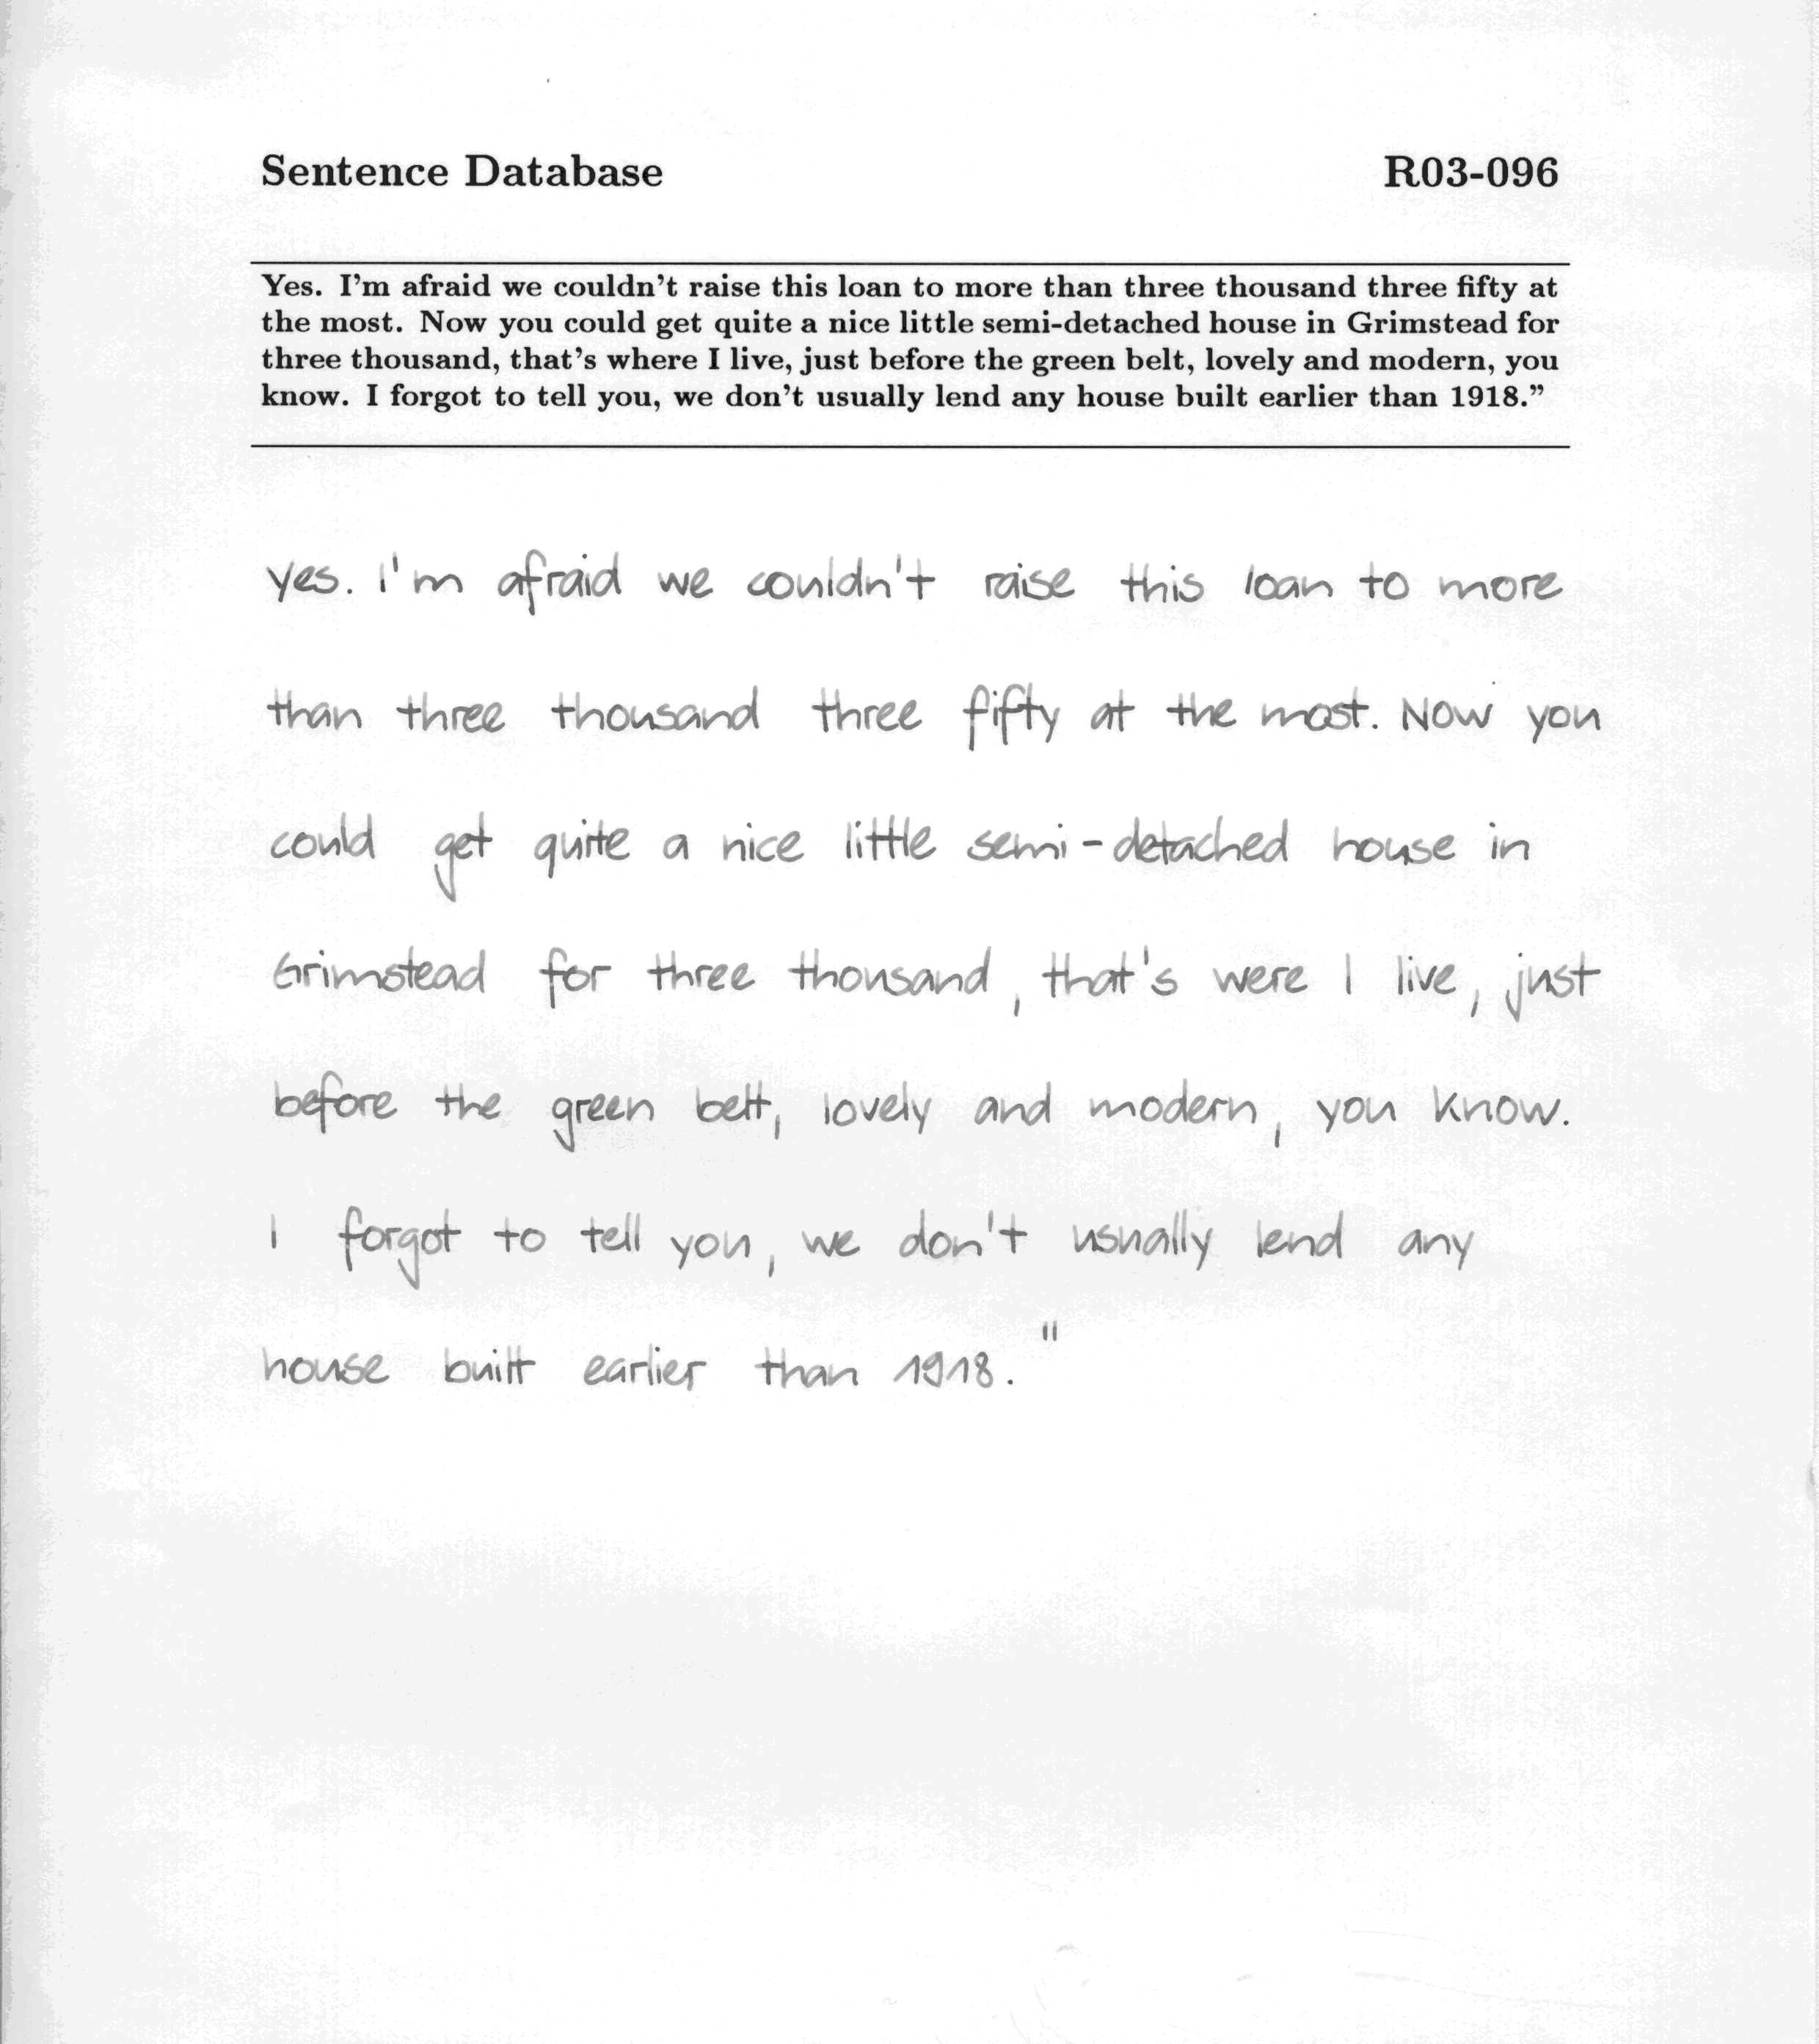 Sentence Database R03-096
Yes. I'm afraid we couldn't raise this loan to more than three thousand three fifty at
the most. Now you could get quite a nice little semi-detached house in Grimstead for
three thousand, that's where I live, just before the green belt, lovely and modern, you
know. I forgot to tell you, we don't usually lend any house built earlier than 1918.”
yes. I'm afraid we couldn't raise this loan to more
than three thousand three fifty at the most. Now you
could get quite a nice little semi-detached house in
Grimstead for three thousand, that's were I live, just
before the green belt, lovely and modern, you know.
I forgot to tell you, we don't usually lend any
house built earlier than 1918."